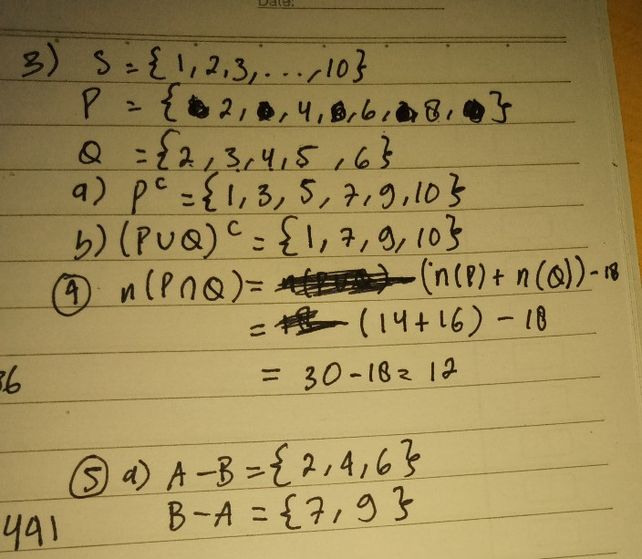 Date:
3) S = {1, 2, 3, ..., 10}
P = {2, 4, 6, 8, }
Q = {2, 3, 4, 5, 6}
a) P^c = {1, 3, 5, 7, 9, 10}
b) (P∪Q)^c = {1, 7, 9, 10}
④ n(P∩Q) = (n(P) + n(Q)) - 18
= (14 + 16) - 18
36
= 30 - 18 = 12
⑤ a) A - B = {2, 4, 6}
491
B - A = {7, 9}